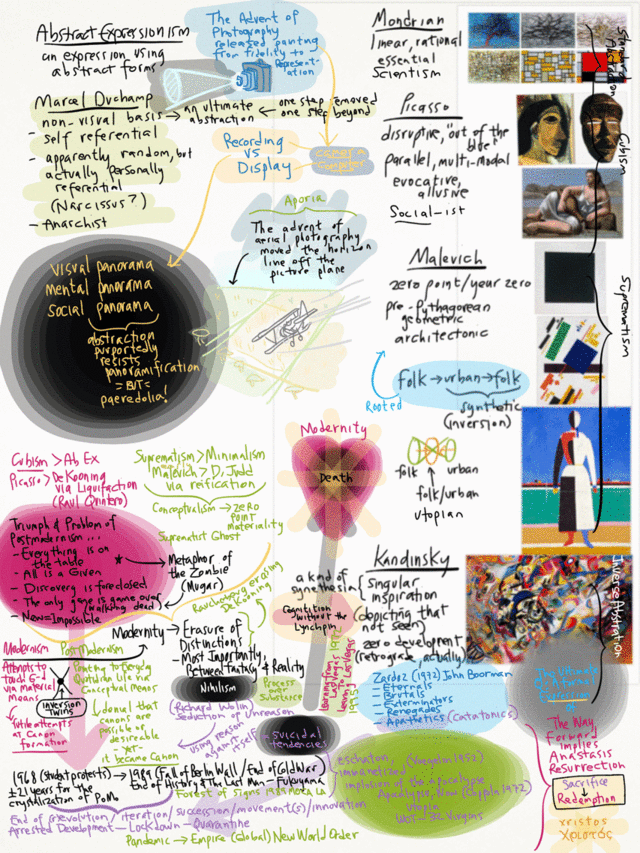 Abstract Expressionism
an expression using
abstract forms
The Advent of
Photography
released painting
from fidelity to
Represent-
ation
Marcel Duchamp
non-visual basis → an ultimate
abstraction
← one step removed
one step beyond
- self referential
- apparently random, but
actually personally
referential
(Narcissus?)
- Anarchist
Recording
VS
Display
camera
computer
Aporia
The advent of
aerial photography
moved the horizon
line off the
picture plane
Visual panorama
mental panorama
Social panorama
abstraction
purportedly
resists
panoramification
= BUT =
paeredolia!
Mondrian
linear, rational
essential
Scientism
Picasso
disruptive, "out of the
blue"
parallel, multi-modal
evocative,
allusive
Social-ist
Malevich
zero point/year zero
pre-Pythagorean
geometric
architectonic
folk → urban → folk
Rooted
synthetic
(inversion)
folk urban
folk/urban
utopian
Cubism
Suprematism
Modernity
Death
Cubism > Ab Ex
Picasso > DeKooning
via Liquifaction
(Raul Quintero)
Suprematism > Minimalism
Malevich > D. Judd
via reification
Conceptualism → zero
point
materiality
Suprematist Ghost
Triumph & Problem of
Postmodernism...
- Everything is on
the table
- All is a Given
- Discovery is foreclosed
- The only game is game over
/walking dead
- New = Impossible
Metaphor of
the Zombie
(Mugar)
Rauschenberg erasing
DeKooning
Modernism
Post Modernism
Attempts to
touch G-d
via Material
Means
Pointing to Everyday
Quotidian Life via
Conceptual Means
inversion
Twins
futile attempts
at Canon
formation
I deny that
canons are
possible or
desireable
- yet -
it became Canon
Modernity → Erasure of
Distinctions
- Most Importantly,
Between Fantasy & Reality
Nihilism
Process over
Substance
Richard Wolin
Seduction of Unreason
using reason
against
itself
- suicidal
tendencies
Kandinsky
a kind of
synethesia
Singular
inspiration
(depicting that
not seen)
zero development
(retrograde, actually)
Cognition
without the
Lynchpin
Learning from
Las Vegas 1972
Leaving Las Vegas
1995
Inverse Abstration
Zardoz (1972) John Boorman
- Eternals
- Brutals
- Exterminators
- Renegades
- Apathetics (Catatonics)
The Ultimate
The Way
Forward
Implies
Anastasis
Resurrection
Sacrifice
↓
Redemption
xristos
Χριστός
1968 (student protests) → 1989 (Fall of Berlin Wall/End of Cold War)
±21 years for the
crystalization of PoMo
End of History & The Last Man - Fukuyama
Forest of Signs 1989 MOCA LA
End of (r)evolution/iteration/succession/movement(s)/innovation
Arrested Development - Lockdown - Quarantine
Pandemic → Empire (Global) New World Order
eschaton, (Voegelin 1952)
immanetized
implosion of the apocalypse
Apocalypse, Now
utopia